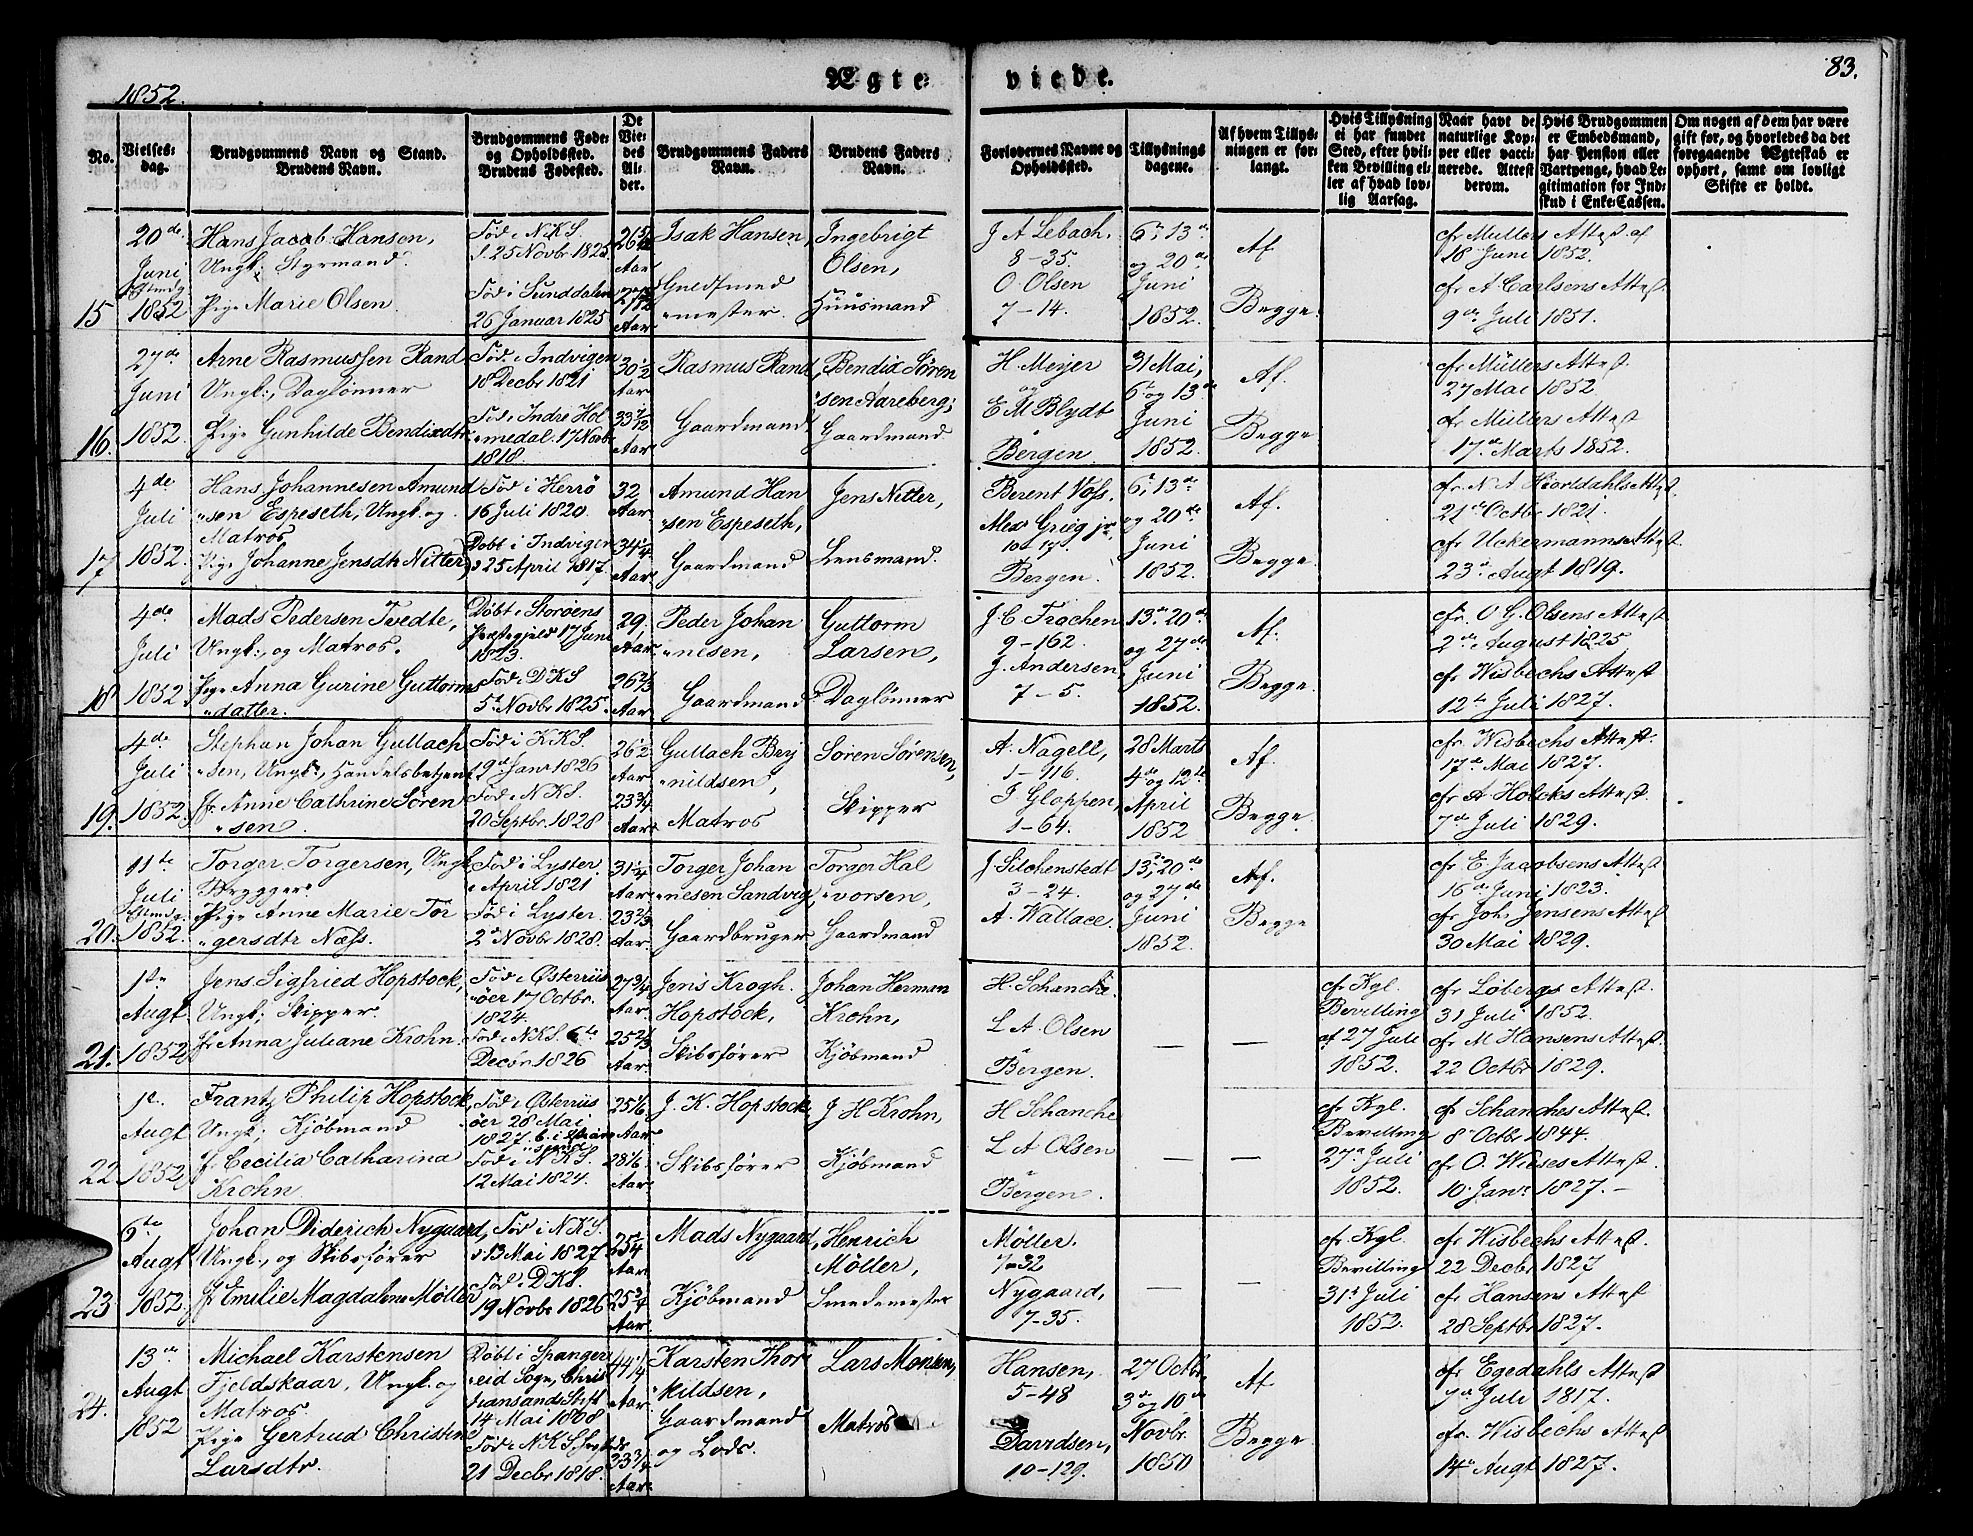 1852.
Ægte
viede.
83.
No.
Vielses-
dag.
Brudgommens Navn og Stand.
Brudens Navn.
Brudgommens Føde-
og Opholdssted.
Brudens Fødested.
De
Vie-
des
Al-
der.
Brudgommens Faders
Navn.
Brudens Faders
Navn.
Forlovernes Navne og
Opholdssted.
Tillysnings
dagene.
Af hvem Tillys-
ningen er for-
langt.
Hvis Tillysning
ei har fundet
Sted, efter hvil-
ken Bevilling el-
ler af hvad lov-
lig Aarsag.
Naar havt de
naturlige Kop-
per eller vacci-
nerede. Attest
derom.
Hvis Brudgommen
er Embedsmand,
har Pension eller
Vartpenge, hvad Le-
gitimation for Ind-
skud i Enke-Cassen.
Om nogen af dem har være
gift før, og hvorledes da det
foregaaende Ægteskab er
ophørt, samt om lovligt
Skifte er holdt.
15
20de
Juni
1852
Hans Jacob Hansen,
Ungk: Styrmand.
Pige Marie Olsen
Fød i NKS.
d. 25 Novbr 1825
Fød i Sunddalen
26 Januar 1825
Aar
Aar
Isak Hansen,
Smedmester.
Ingebrigt
Olsen,
Huusmand
J A Lebach.
8-35.
O. Olsen
7-14.
6te 13de
og 20de
Juni
1852.
Af
Begge.
cfr Mullers Attest af
18 Juni 1852.
cfr A Carlsens Attest.
9de Juli 1851.
16.
27de
Juni
1852.
Arne Rasmussen Rand
Ungk:, Daglønner
Pige Gunhilde Bendixdtr
Fød i Indvigen
18 Decbr 1821
Fød i Indre Hol
medal. 17 Novbr
1818.
30½
Aar
33 1/12
Aar
Rasmus Rand
Gaardmand
Bendix Søren
sen Aareberg;
Gaardmand
H. Meyer
og
E M Blydt
Bergen
31 Mai,
6te og 13de
Juni
1852.
Af.
Begge.
cfr Müllers Attest
27 Mai 1852.
cfr Müllers Attest
17de Marts 1852.
17
4de
Juli
1852.
Hans Johannesen Amund
sen Espeseth, Ungk. og
Matros
Pige Johanne Jensdtr Nitter,
Fød i Herrø
16 Juli 1820.
Døbt i Indvigen
25 April 1817.
32
Aar.
34¼
Aar
Amund Han
sen Espeseth,
Gaardmand
Jens Nitter,
Lensmand.
Berent Voss.
Alex Grieg jr,
10-17.
Bergen.
6te 13de
og 20de
Juni
1852.
Af.
Begge.
cfr N A Hiortdahls Attest
21de Octbr 1821.
cfr Uckermanns Attest
23de Augt 1819.
18
4de
Juli
1852
Mads Pedersen Tvedte,
Ungk:, og Matros.
Pige Anna Gurine Guttorms
datter.
Døbt i Storøens
Præstegjeld 17 Juni
1823.
Fød i DKS
5 Novbr 1825.
29.
Aar.
26 2/3
Aar
Peder Johan
nesen,
Gaardmand
Guttorm
Larsen,
Daglønner
J. C. Frøchen
9-162.
J. Andersen
7-5.
13de 20de
og 27de
Juni
1852.
Af.
Begge
cfr. O G. Olsens Attest
2de August 1825
cfr Wisbechs Attest.
12te Juli 1827.
19.
4de
Juli
1852.
Stephan Johan Gullach
sen, Ungk:, Handelsbetjent
Jfr Anne Cathrine Søren
sen.
Fød i KKS.
19de Janr 1826
Fød i NKS.
20 Septbr. 1828
26½
Aar
23¾
Aar
Gullach Berj
nildsen,
Matros
Søren Sørensen,
Skipper
A. Nagell,
1-116.
J Gloppen,
1-64.
28 Marts
4de og 12te
April
1852
Af.
Begge.
cfr. Wisbechs Attest.
17de Mai 1827.
cfr A Holcks Attest.
7de Juli 1829.
20.
11te
Juli
1852.
Torger Torgersen, Ungk
Brygger.
Pige Anne Marie Tor
gersdtr Næss.
Fød i Lyster.
April 1821
Fød i Lyster
2de Novbr 1828.
31¼
Aar
23 2/3
Aar
Torger Johan
nesen Sandvig,
Gaardbruger
Torger Hal
vorsen,
Gaardmand
J. Silchenstedt
3-24.
A. Wallace.
13de 20de
og 27de
Juni
1852.
Af.
Begge
cfr E. Jacobsens Attest
16de Juni 1823.
cfr Joh. Jensens Attest
30 Mai 1829.
21.
1ste
Augt
1852
Jens Sigfried Hopstock,
Ungk; Skipper.
Jfr Anna Juliane Krohn.
Fød i Østerriis
øer 17 Octbr.
1824.
Fød i NKS. 6te
Decbr 1826
27¾
Aar.
25 2/3
Aar.
Jens Krogh
Hopstock,
Skibsfører
Johan Herman
Krohn,
Kjøbmand
H. Schanche.
L A. Olsen
Bergen.
cfr Kgl.
Bevilling
af 27 Juli
1852.
cfr Løbergs Attest.
31 Juli 1852.
cfr M Hansens Attest.
22 Octbr 1829.
22
1ste
Augt
1852
Frantz Philip Hopstock,
Ungk; Kjøbmand
Jfr Cecilia Catharina
Krohn
Fød i Østerriis
øer 28 Mai
1827.
Fød i NKS.
12 Mai 1824.
25 1/6
Aar
28 1/6
Aar.
J. K. Hopstock
Skibsfører
J H Krohn,
Kjøbmand
H Schanche
L A Olsen
Bergen.
cfr Kgl.
Bevilling
27de Juli
1852.
cfr Schanches Attest
8 Octbr 1844.
cfr O. Wieses Attest
10 Janr 1827.-
23
6te
Augt
1852
Johan Diderich Nygaard,
Ungk:, og Skibsfører
Jfr Emilie Magdalene Møller
Fød i NKS.
13 Mai 1827
Fød i DKS.
19 Novbr 1826
25¼
Aar
25¾
Aar
Mads Nygaard,
Kjøbmand
Henrich
Møller,
Smedemester
Møller.
7-32
Nygaard,
7-35.
cfr Kgl.
Bevilling
31te Juli
1852.
cfr Wisbechs Attest
22 Decbr 1827
cfr Hansens Attest
28 Septbr 1827.
24.
13de
Augt
1852
Michael Karstensen
Fjeldskaar, Ungk. og
Matros.
Pige Gertrud Christine
Larsdtr.
Døbt i Spanger
eid Sogn, Chris
tiansands Stift
14 Mai 1808
Fød i NKS
21 Decbr 1818.
44¼
Aar
33¾
Aar
Karsten Thor
kildsen,
Gaardmand
og Lods.
Lars Monsen,
Matros
Hansen,
5-48
Davidsen,
10-129.
27 Octbr
3de og 10de
Novbr.
1850
Af
Begge.
cfr Egedahls Attest
7de Juli 1817.
cfr. Wisbechs Attest
14de Augt 1827.